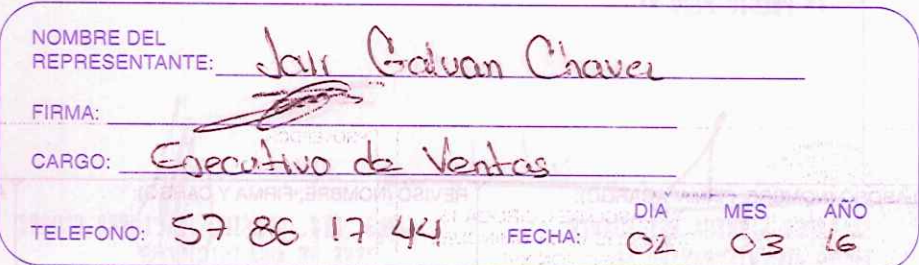 NOMBRE DEL
REPRESENTANTE: Jair Galvan Chavez
FIRMA:
CARGO: Ejecutivo de Ventas
DIA MES AÑO
TELEFONO: 57 86 17 44 FECHA: 02 03 16